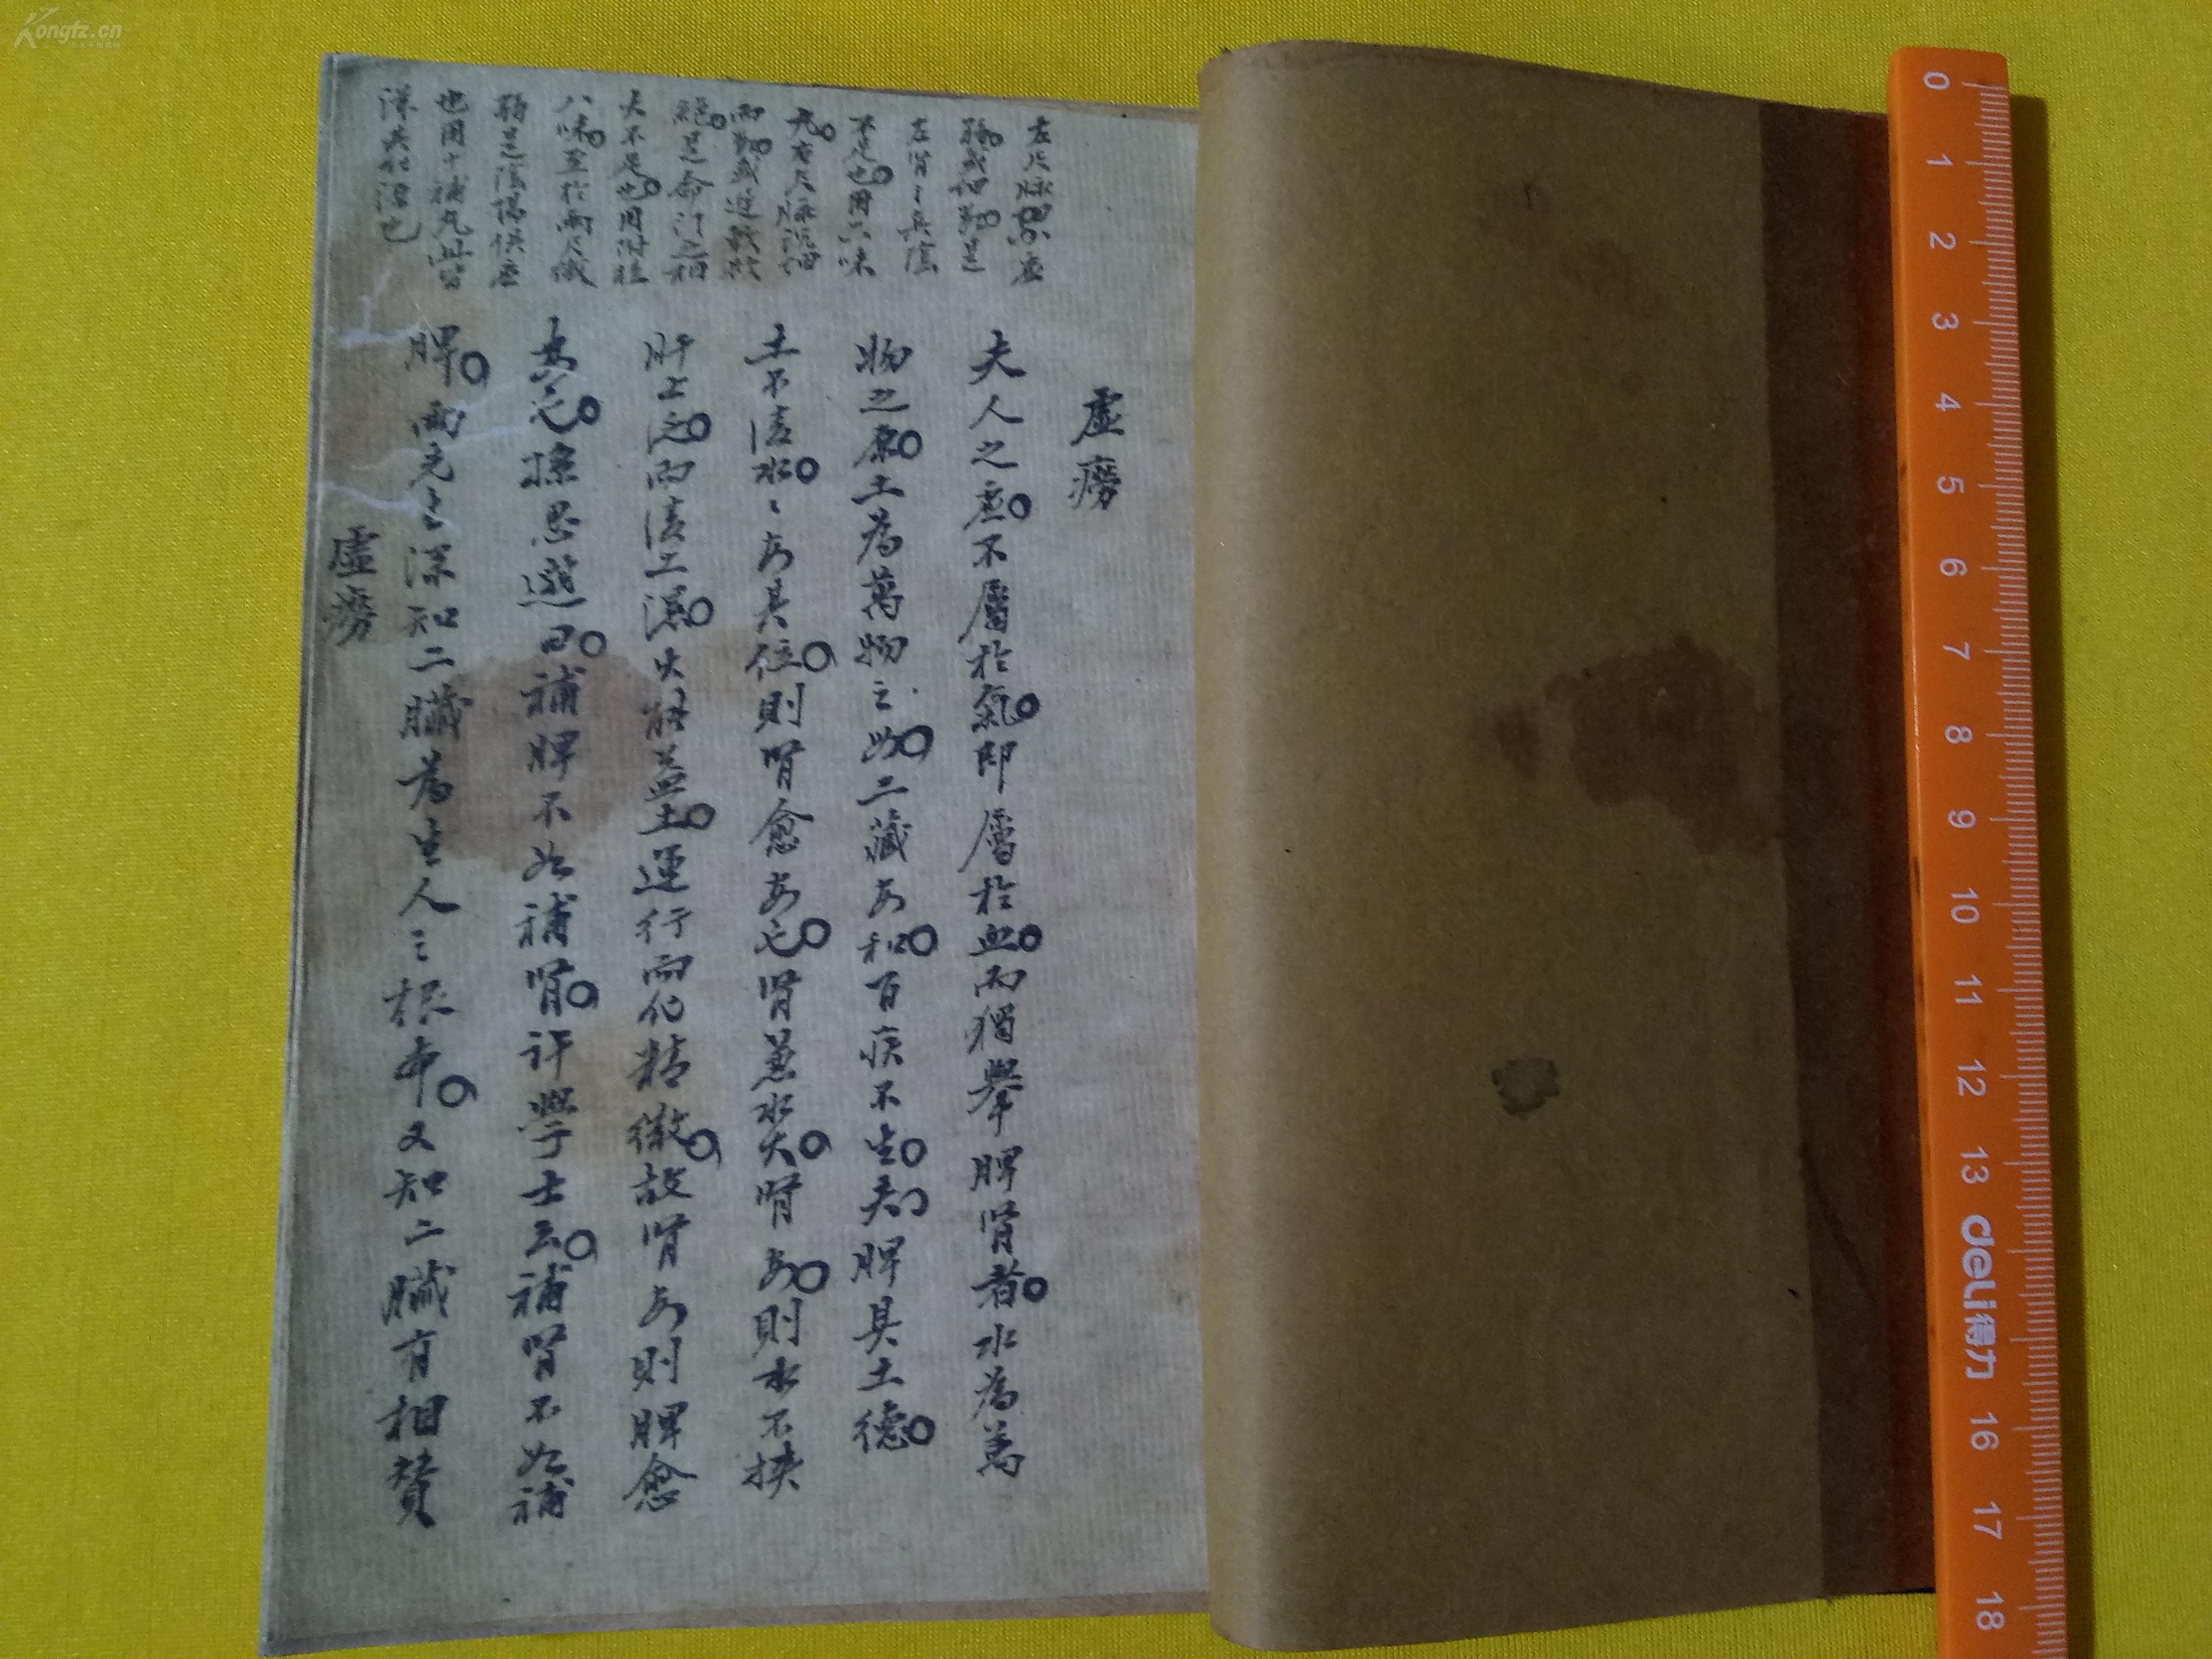 虛癆
夫人之虛不屬於氣即屬於血而獨舉脾腎者水為萬
物之原土為萬物之母二藏安和百疾不生夫脾具土德
土不淩水水安其位則腎愈安也腎兼水火腎安則水不挾
肝上泛而淩土濕火能益土運行而化精微故腎安則脾愈
安也孫思邈曰補脾不如補腎許學士云補腎不如補
脾兩先生深知二臟為生人之根本又知二臟有相贊
虛癆
左尺脉虛
弱或細數是
左腎之真陰
不足也用六味
丸右尺脉沉細
而數或遲軟於
絕是命门之相
火不足也用附桂
八味至於兩尺微
弱是陰陽俱虛
也用十補丸此皆
其化源也
Kongfz.cn
0
1
2
3
4
5
6
7
8
9
10
11
12
13
deli得力
16
17
18